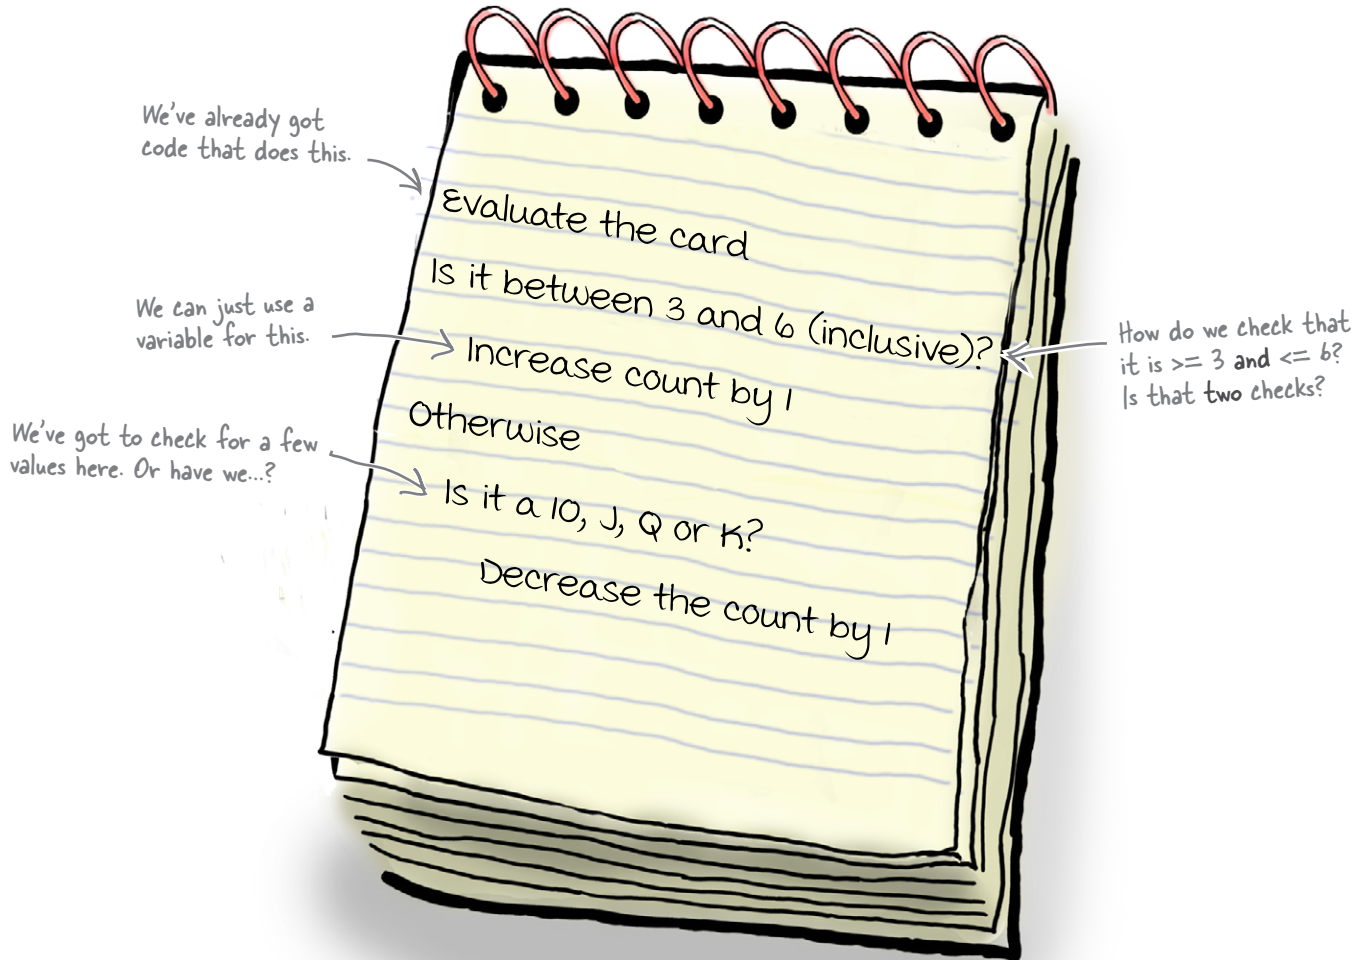 We've already got
code that does this.
Evaluate the card
Is it between 3 and 6 (inclusive)?
We can just use a
variable for this.
How do we check that
it is >= 3 and <= 6?
Is that two checks?
Increase count by 1
Otherwise
We've got to check for a few
values here. Or have we...?
Is it a 10, J, Q or K?
Decrease the count by 1